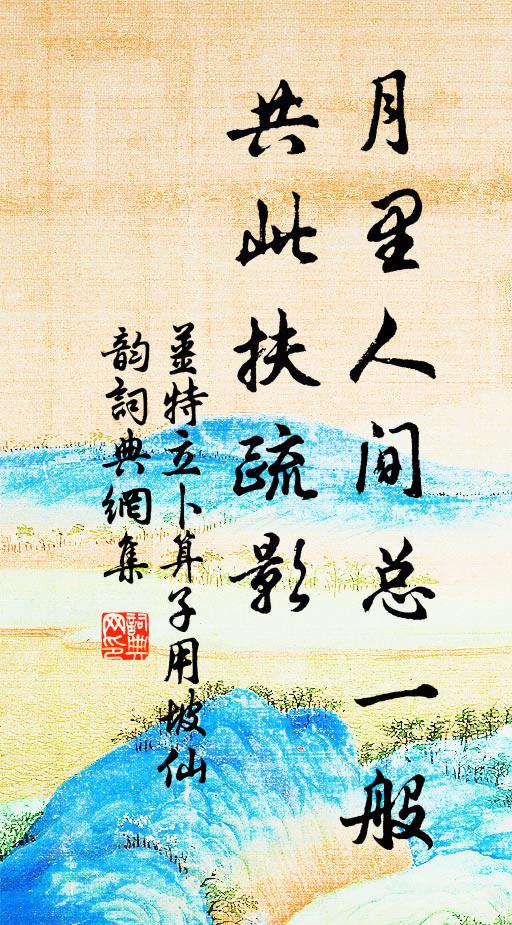 月里人间总一般
共此扶疏影
姜特立卜算子用坡仙
韵詞典網集
詞典
网印